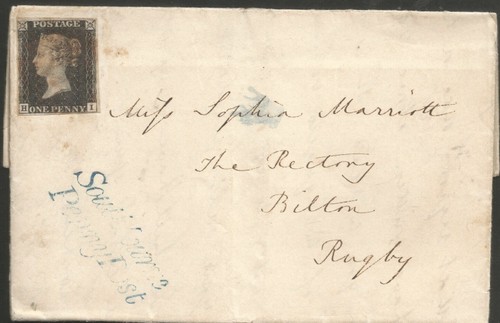 POSTAGE
H I
ONE PENNY
Miss Sophia Marriott
The Rectory
Bilton
Rugby
Penny Post